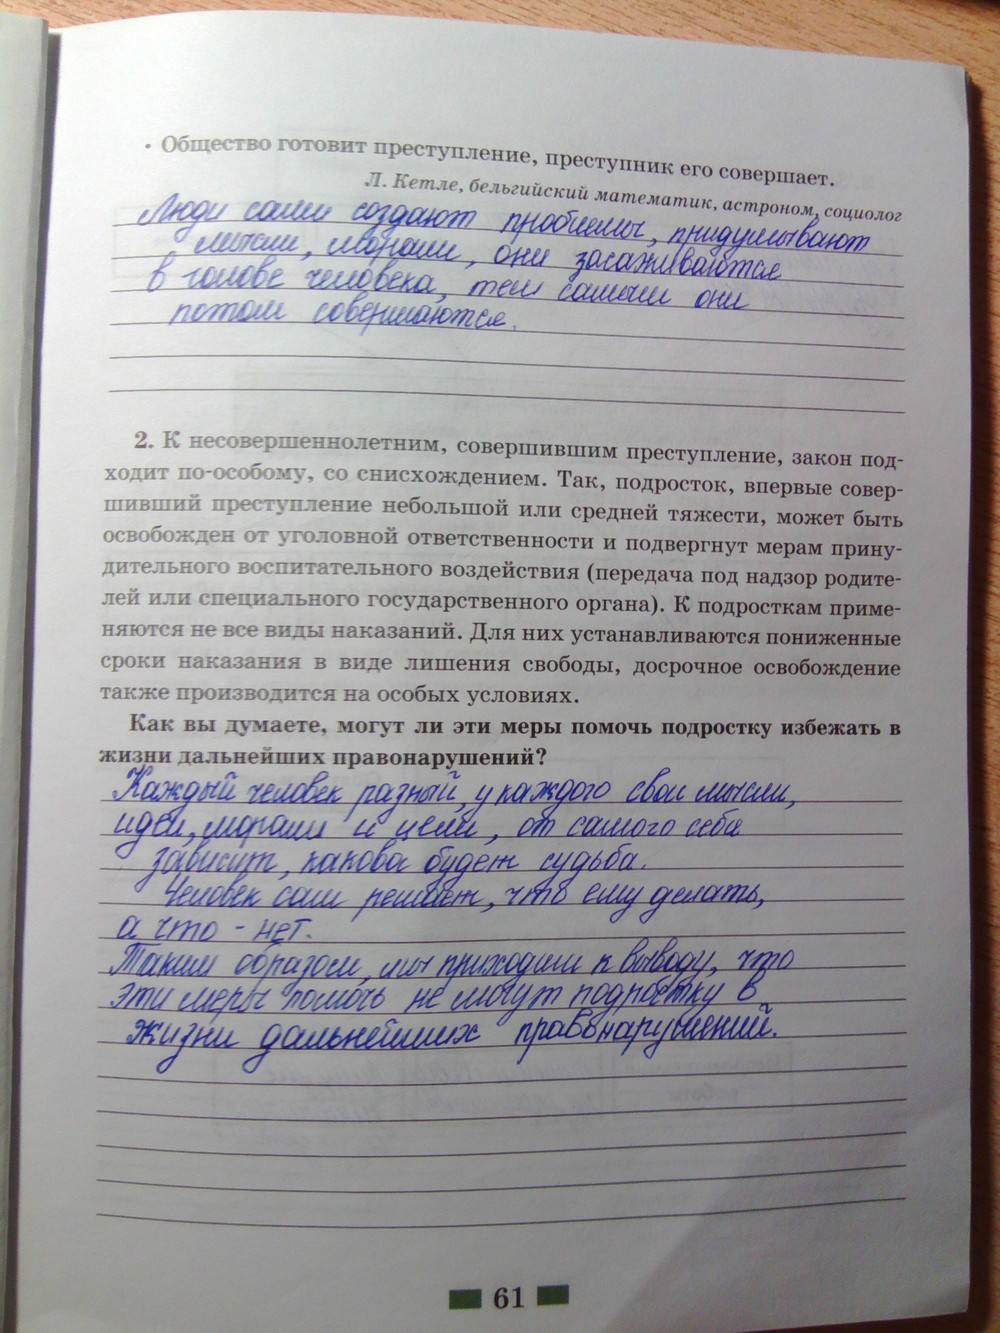 • Общество готовит преступление, преступник его совершает.
Л. Кетле, бельгийский математик, астроном, социолог
Люди сами создают проблемы, придумывают
мысли, морали, они засаживаются
в голове человека, тем самым они
потом совершаются.
2. К несовершеннолетним, совершившим преступление, закон под-
ходит по-особому, со снисхождением. Так, подросток, впервые совер-
шивший преступление небольшой или средней тяжести, может быть
освобожден от уголовной ответственности и подвергнут мерам прину-
дительного воспитательного воздействия (передача под надзор родите-
лей или специального государственного органа). К подросткам приме-
няются не все виды наказаний. Для них устанавливаются пониженные
сроки наказания в виде лишения свободы, досрочное освобождение
также производится на особых условиях.
Как вы думаете, могут ли эти меры помочь подростку избежать в
жизни дальнейших правонарушений?
Каждый человек разный, у каждого свои мысли,
идеи, морали и цели, от самого себя
зависит, какова будет судьба.
Человек сам решает, что ему делать,
а что - нет.
Таким образом, мы приходим к выводу, что
эти меры помочь не могут подростку в
жизни дальнейших правонарушений.
61